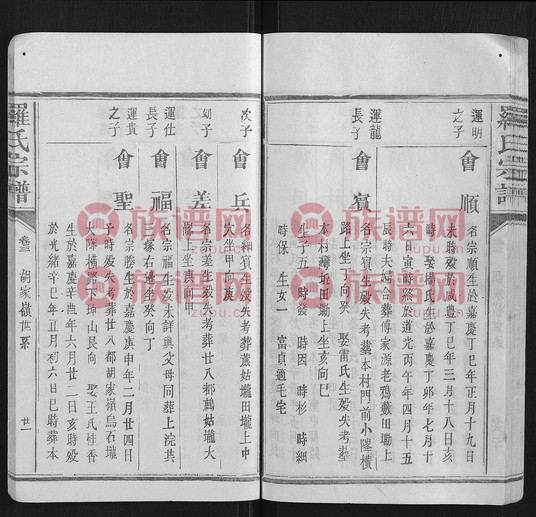 運明
之子
會順
名宗順生於嘉慶丁巳年正月十九日
未時殁於咸豊丁巳年三月十八日亥
時 娶楊氏生於嘉慶丁卯年七月十
六日寅時終於道光丙午年四月十五
辰時夫婦合葬傅家源老鴉薮田塝上
運龍
長子
會賓
名宗賓生殁失考葬本村門前小塝橫
路上坐丁向癸 娶雷氏生殁失考葬
本村灣坵田塝上坐亥向巳
生子五 時發 時因 時杉 時細
時保 生女一 富貞適毛宅
次子
會兵
名細賓生殁失考葬蕪姑壠田壠上中
穴坐甲向庚
幼子
會差
名宗差生殁失考葬廿八都鵝姑壠大
塝上坐庚向甲
運仕
長子
會福
名宗福生殁未詳與父母同葬上浣共
三塚右邊坐癸向丁
運貴
之子
會聖
名宗勝生於嘉慶庚申年二月廿四日
子時殁失考葬廿八都胡家嶺烏石壠
大陣橫路下坤山艮向 娶王氏桂香
生於嘉慶辛酉年六月廿二日亥時殁
於光緒辛巳年五月初六日巳時葬本
羅氏宗譜
卷三
胡家嶺世系
廿一
羅氏宗譜
族谱网
zupu.cn
族谱网
zupu.cn